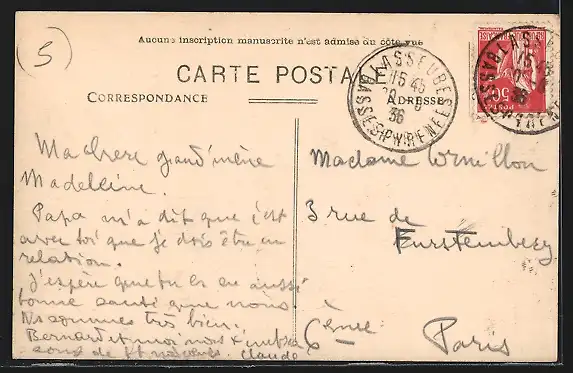 (5)
Aucune inscription manuscrite n'est admise du côté vue
CARTE POSTALE
CORRESPONDANCE
ADRESSE
LASSEUBE
15 45
36
BASSES-PYRENEES
50
Ma chere grand'mère
Madeleine.
Papa m'a dit que c'est
avec toi que je dois être en
relation.
J'espère que tu es en aussi
bonne santé que nous
Ns sommes très bien.
Bernard et moi nous
sons de Claude
Madame
3 rue de
Furstemberg
6ème Paris